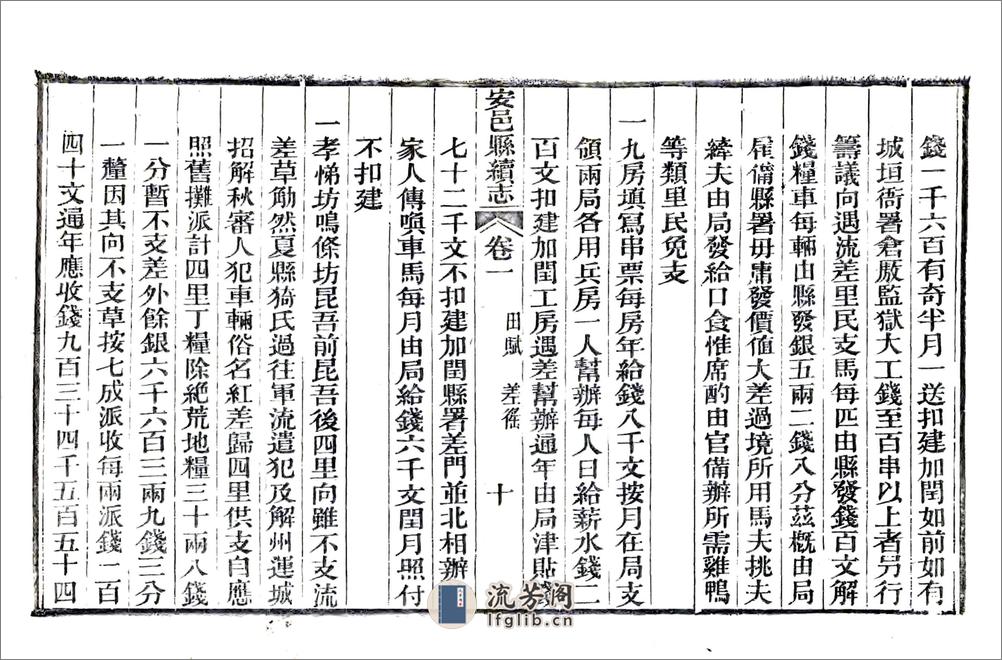 錢一千六百有奇半月一送扣建加閏如前如有
城垣衙署倉廒監獄大工錢至百串以上者另行
籌議向遇流差里民支馬每匹由縣發錢百文解
錢糧車每輛由縣發銀五兩二錢八分茲概由局
雇備縣署毋庸發價值大差過境所用馬夫挑夫
縴夫由局發給口食惟席酌由官備辦所需雞鴨
等類里民免支
一九房填寫串票每房年給錢八千文按月在局支
領兩局各用兵房一人幫辦每人日給薪水錢二
百文扣建加閏工房遇差幫辦通年由局津貼錢
安邑縣續志 卷一 田賦 差徭 十
七十二千文不扣建加閏縣署差門並北相辦
家人傳喚車馬每月由局給錢六千文閏月照付
不扣建
一孝悌坊鳴條坊昆吾前昆吾後四里向雖不支流
差草觔然夏縣猗氏過往軍流遣犯及解州運城
招解秋審人犯車輛俗名紅差歸四里供支自應
照舊攤派計四里丁糧除絕荒地糧三十兩八錢
一分暫不支差外餘銀六千六百三兩九錢三分
一釐因其向不支草按七成派收每兩派錢一百
四十文通年應收錢九百三十四千五百五十四
流芳閣
lfglib.cn